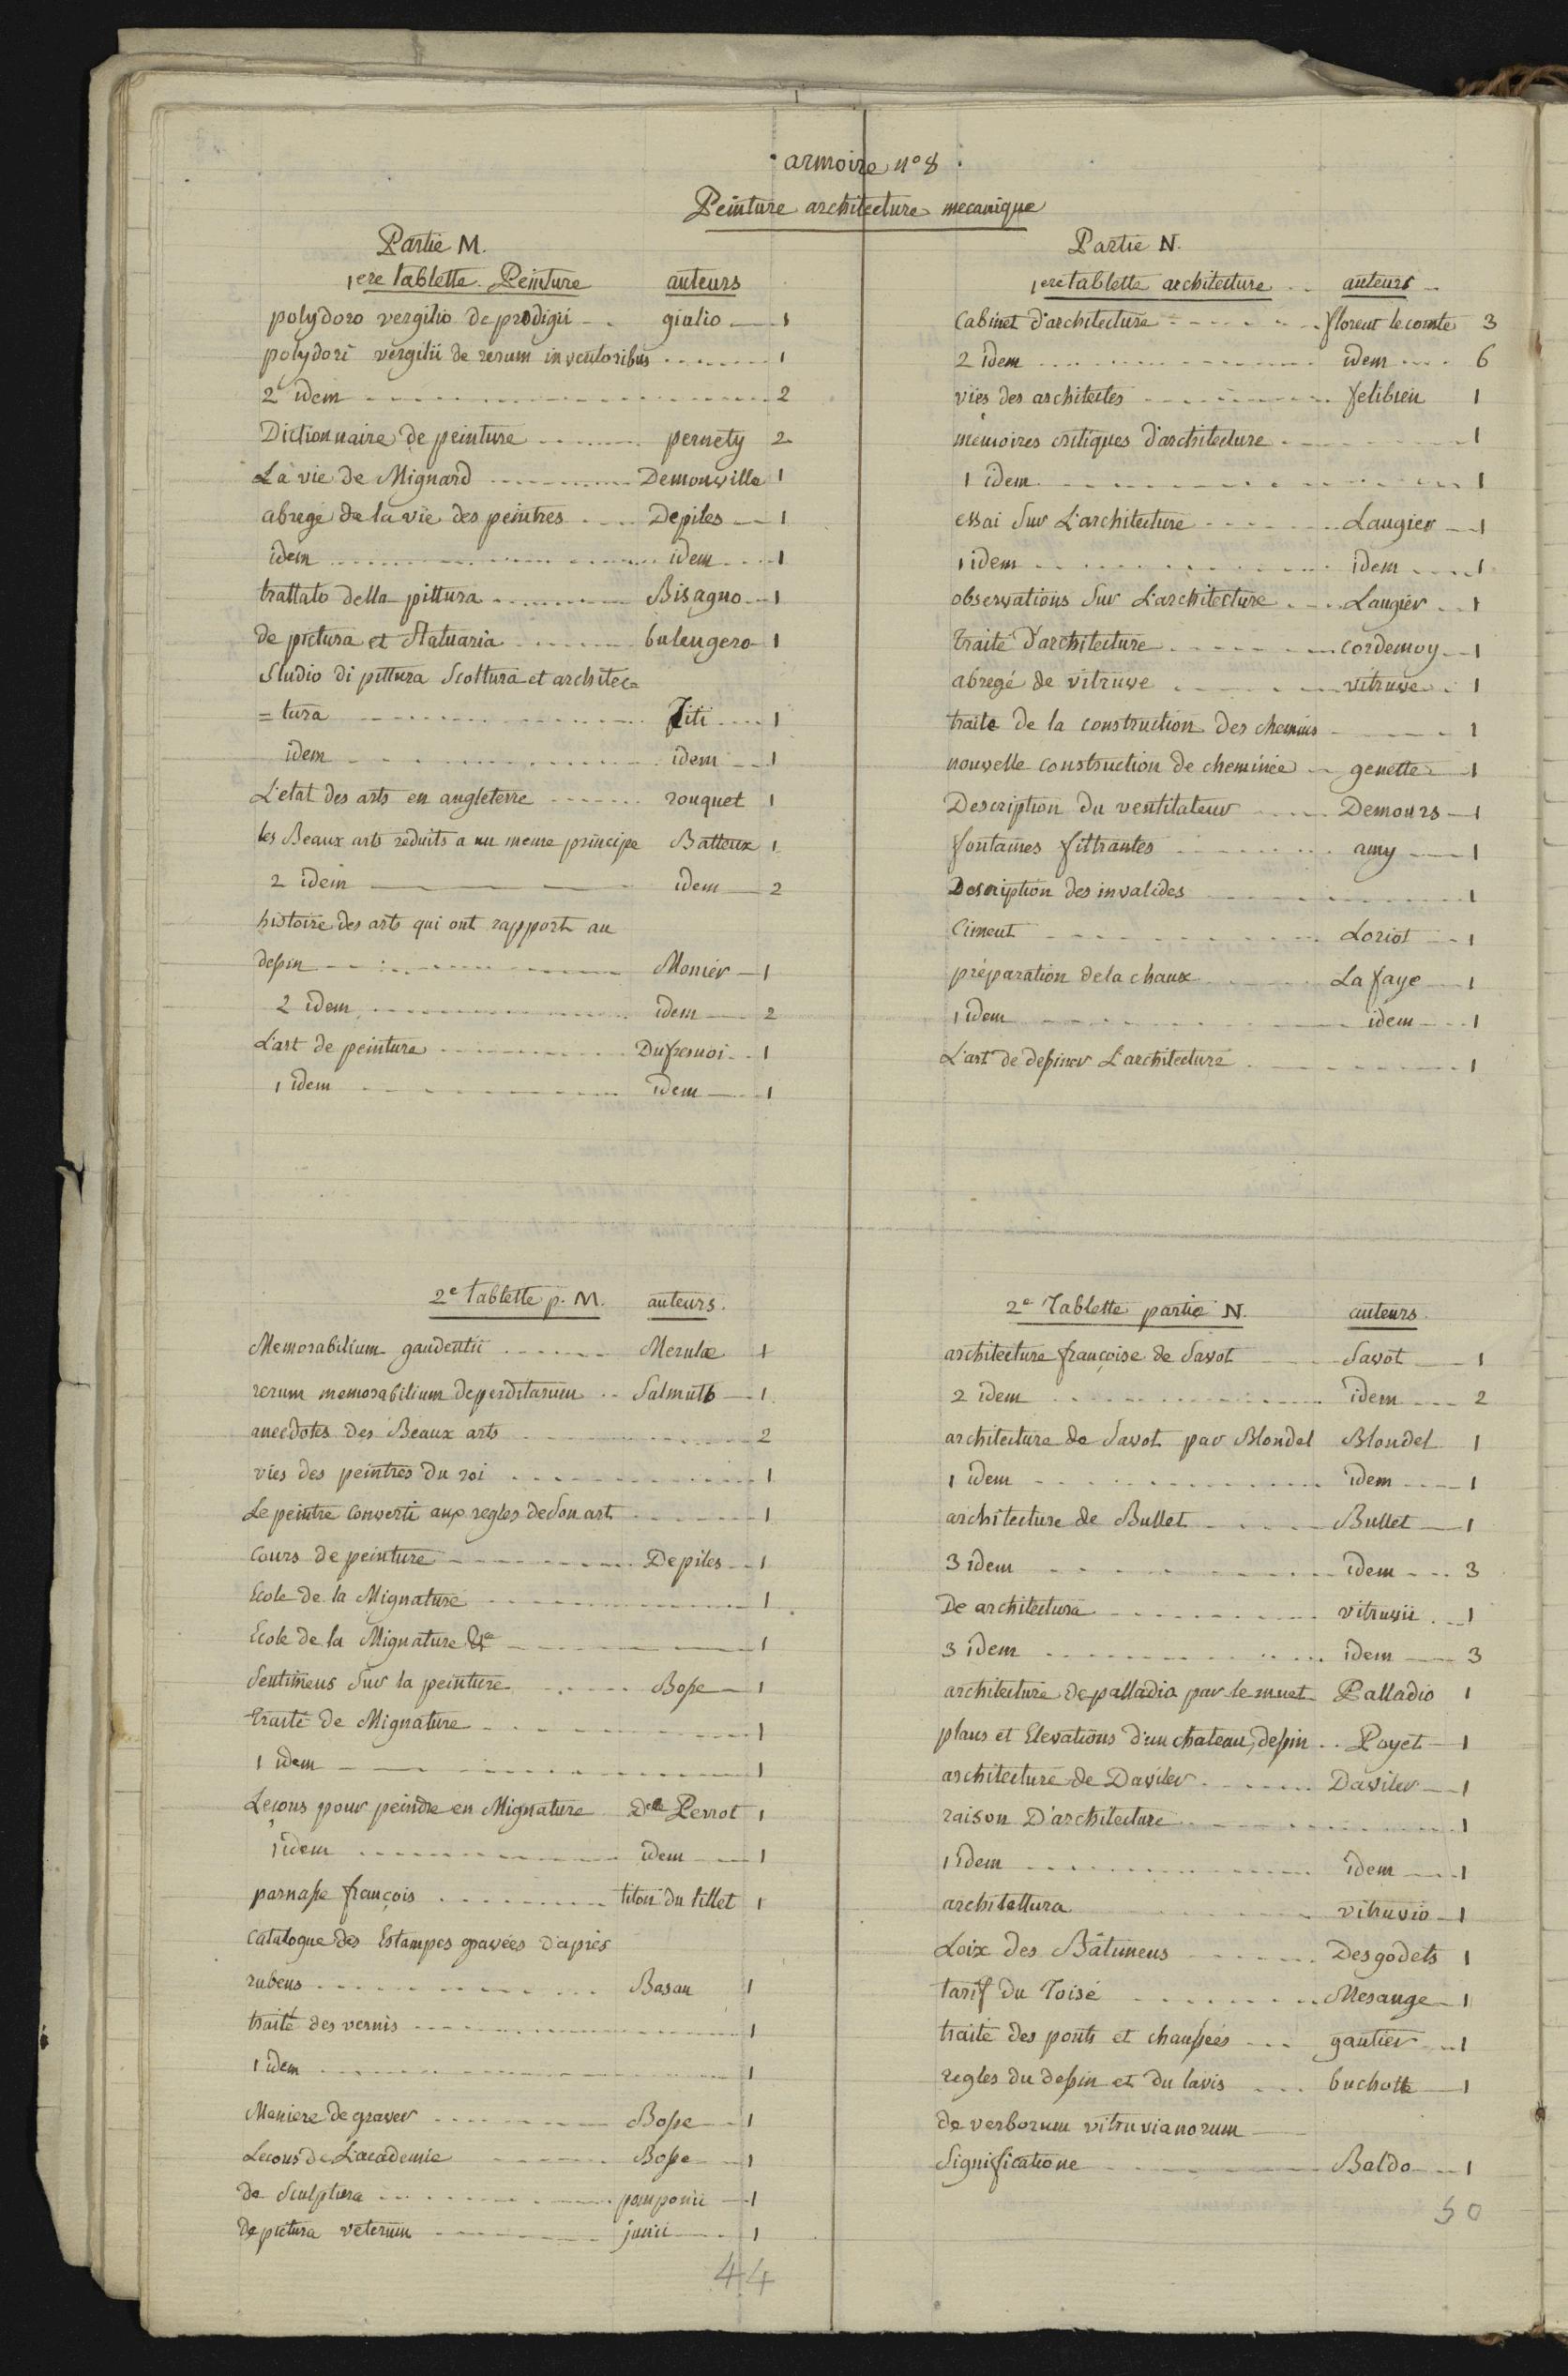 armoire n° 8
Peinture architecture mecanique
Partie M.
1ere tablette Peinture auteurs
polydoro vergilio de prodigii giulio 1
polydori vergilii de rerum inventoribus 1
2 idem 2
Dictionnaire de peinture pernety 2
La vie de Mignard Demonville 1
abregé de la vie des peintres Depiles 1
idem idem 1
trattato della pittura Bisagno 1
de pictura et Statuaria bulengero 1
Studio di pittura Scoltura et architec=
=tura Titi 1
idem idem 1
L'etat des arts en angleterre rouquet 1
les Beaux arts reduits a un meme principe Batteux 1
2 idem idem 2
histoire des arts qui ont rapport au
dessin Monier 1
2 idem idem 2
L'art de peinture Dufresnoi 1
1 idem idem 1
2e tablette p. M. auteurs.
Memorabilium gaudentii Merulæ 1
rerum memorabilium deperditarum Salmuth 1
anecdotes des Beaux arts 2
vies des peintres du roi 1
Le peintre converti aux regles de Son art 1
Cours de peinture Depiles 1
Ecole de la Mignature 1
Ecole de la Mignature &a 1
Sentimens Sur la peinture Bosse 1
traité de Mignature 1
1 idem 1
Leçons pour peindre en Mignature Delle Perrot 1
1 idem idem 1
parnasse françois titon du tillet 1
Catalogue des Estampes gravées d'après
rubens Basan 1
traité des vernis 1
1 idem 1
Maniere de graver Bosse 1
Lecons de L'academie Bosse 1
de Sculptura pomponii 1
de pictura veterum junii 1
44
Partie N.
1ere tablette architecture auteurs
Cabinet d'architecture florent le comte 3
2 idem idem 6
vies des architectes felibien 1
mémoires critiques d'architecture 1
1 idem 1
essai Sur L'architecture Laugier 1
1 idem idem 1
observations Sur L'architecture Laugier 1
traité d'architecture cordemoy 1
abregé de vitruve vitruve 1
traite de la construction des chemins 1
nouvelle construction de cheminée genette 1
Description du ventilateur Demours 1
fontaines filtrantes amy 1
Description des invalides 1
Ciment Loriot 1
préparation de la chaux La faye 1
1 idem idem 1
L'art de dessiner L'architecture 1
2e Tablette partie N. auteurs
architecture françoise de Savot Savot 1
2 idem idem 2
architecture de Savot par Blondel Blondel 1
1 idem idem 1
architecture de Bullet Bullet 1
3 idem idem 3
De architectura vitruvii 1
3 idem idem 3
architecture de palladio par le muet Palladio 1
plans et Elevations d'un chateau, dessin Poyet 1
architecture de Daviler Daviler 1
raison D'architecture 1
1 idem idem 1
architettura vitruvio 1
Loix des Bâtimens Desgodets 1
tarif du Toisé Mesange 1
traité des ponts et chaussées gautier 1
regles du dessin et du lavis buchotte 1
de verborum vitruvianorum
Significatione Baldo 1
50